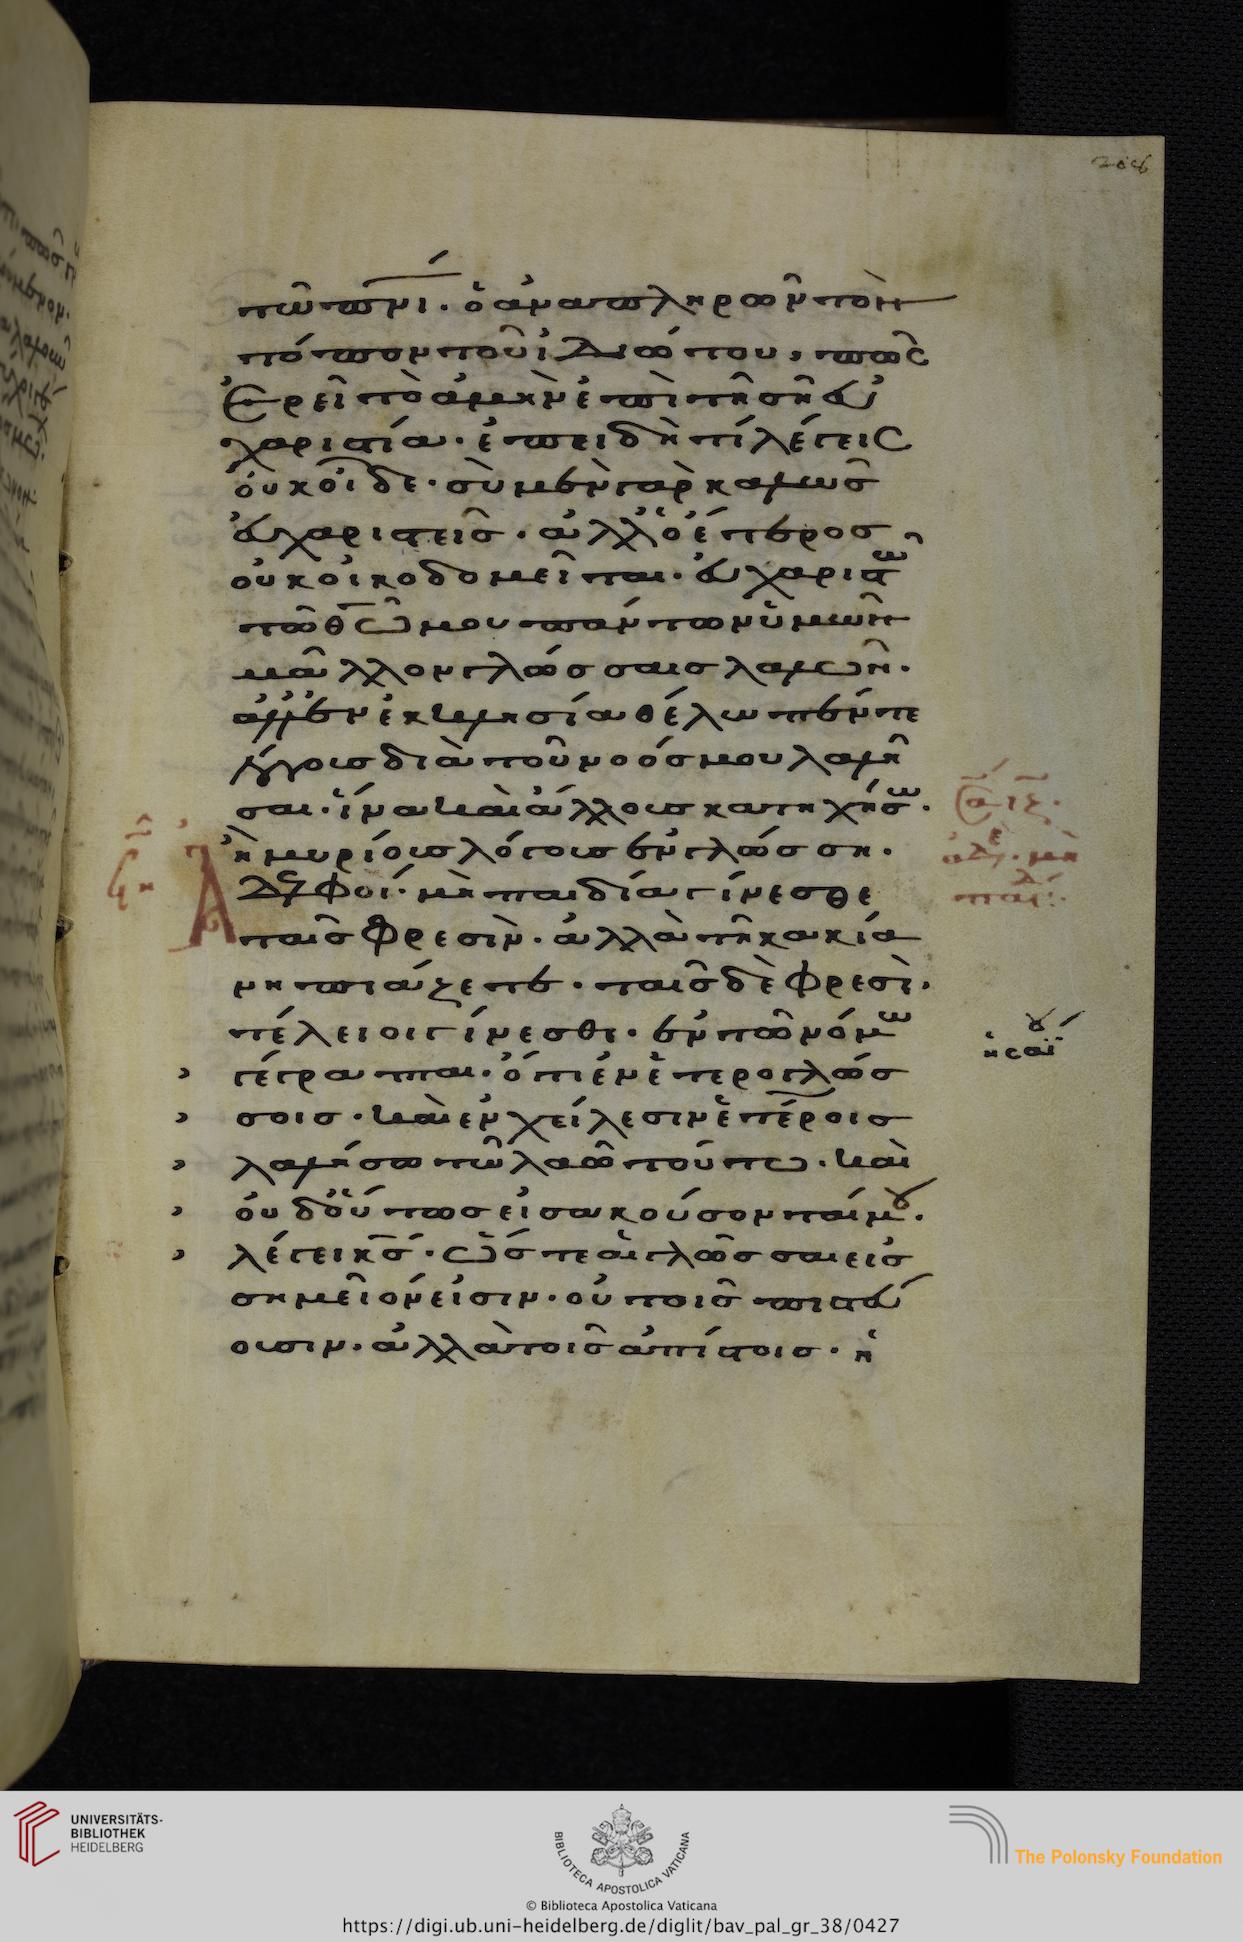 206
τῶ πνί· ὁ ἀναπληρῶν τὸν
τόπον τοῦ ἰδιώτου, πῶς
ἐρεῖ τὸ ἀμὴν ἐπὶ τῆ σῆ εὐ
χαριστία· ἐπειδὴ τί λέγεις
οὐκ οἶδε· σὺ μὲν γὰρ καλῶς
εὐχαριστεῖς· ἀλλ' ὁ ἕτερος
οὐκ οἰκοδομεῖται· εὐχαριστῶ
τῶ θῶ μου πάντων ὑμῶν
μᾶλλον γλώσσαις λαλῶν·
ἀλλ' ἐν ἐκκλησία θέλω πέντε
λόγους διὰ τοῦ νοός μου λαλῆ
σαι· ἵνα καὶ ἄλλους κατηχήσω·
ἢ μυρίους λόγους ἐν γλώσση·
Ἀδελφοί· μὴ παιδία γίνεσθε
ταῖς φρεσὶν· ἀλλὰ τῆ κακία
νηπιάζετε· ταῖς δὲ φρεσὶ·
τέλειοι γίνεσθε· ἐν τῶ νόμω
γέγραπται· ὅτι ἐν ἑτερογλώσ
σοις· καὶ ἐν χείλεσιν ἑτέροις
λαλήσω τῶ λαῶ τούτω· καὶ
οὐδ' οὕτως εἰσακούσονταί μου·
λέγει κς· ὥστε αἱ γλῶσσαι εἰς
σημεῖόν εἰσιν· οὐ τοῖς πιστεύ
ουσιν· ἀλλὰ τοῖς ἀπίστοις· ἡ
ἡσαΐου
UNIVERSITÄTS-
BIBLIOTHEK
HEIDELBERG
BIBLIOTECA APOSTOLICA VATICANA
The Polonsky Foundation
© Biblioteca Apostolica Vaticana
https://digi.ub.uni-heidelberg.de/diglit/bav_pal_gr_38/0427